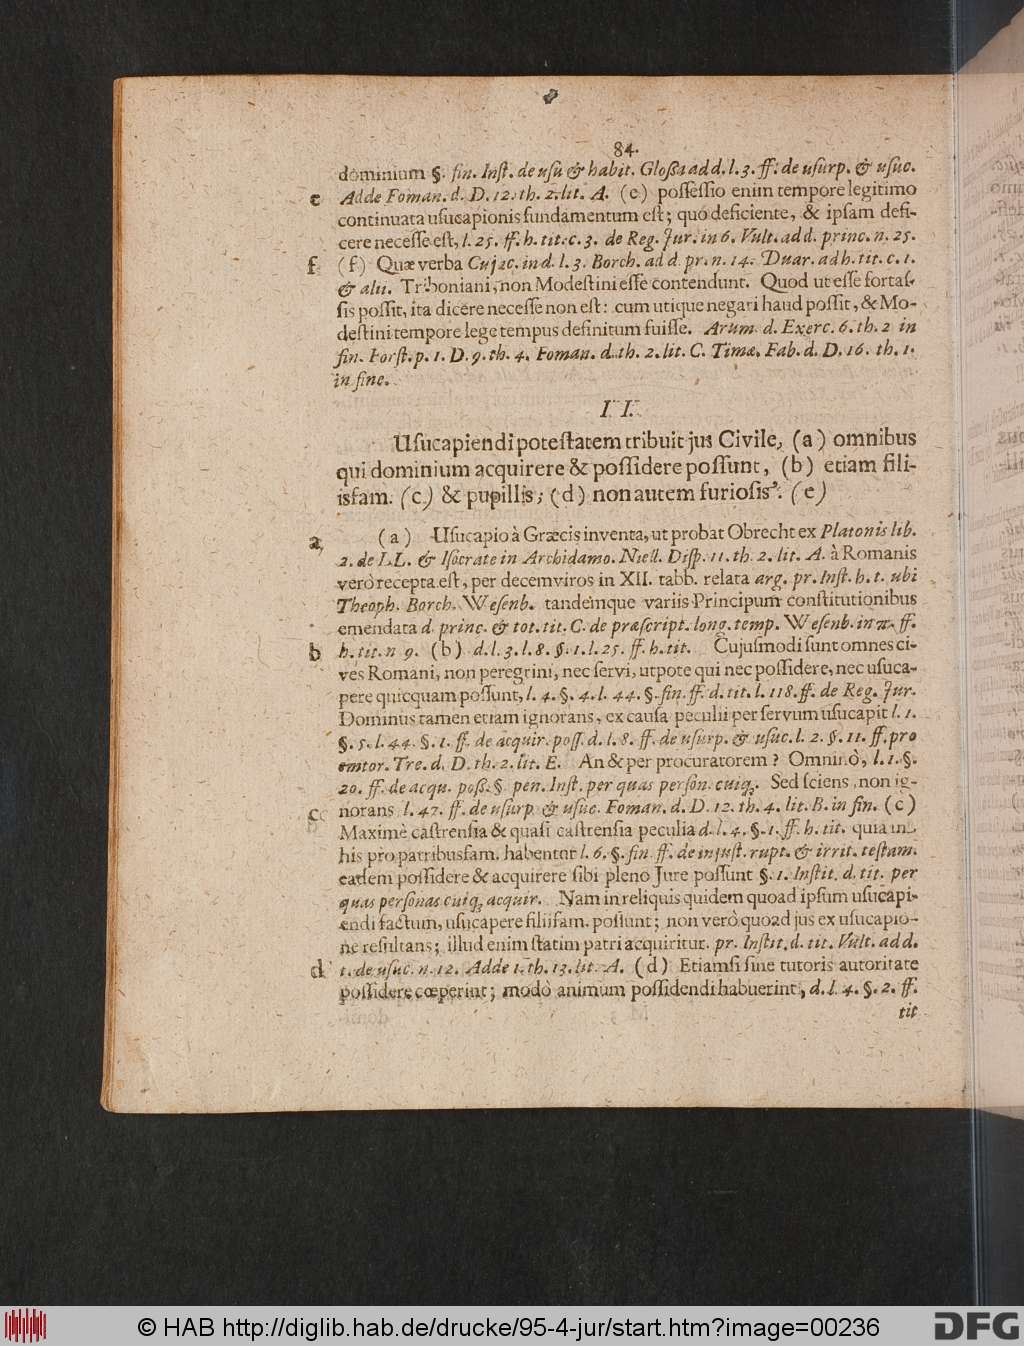 84.
dominium §. fin. Inst. de usu & habit. Glossa ad d. l. 3. ff. de usurp. & usuc.
e Adde Foman. d. D. 12. th. 2. lit. A. (e) possessio enim tempore legitimo
continuata usucapionis fundamentum est; quó deficiente, & ipsam defi-
cere necesse est, l. 25. ff. h. tit. c. 3. de Reg. Jur. in 6. Vult. ad d. princ. n. 25.
f (f) Quæ verba Cujac. in d. l. 3. Borch. ad d. pr. n. 14. Duar. ad h. tit. c. 1.
& alii. Triboniani, non Modestini esse contendunt. Quod ut esse fortas-
sis possit, ita dicere necesse non est: cum utique negari haud possit, & Mo-
destini tempore lege tempus definitum fuisse. Arum. d. Exerc. 6. th. 2 in
fin. Forst. p. 1. D. 9. th. 4. Foman. d. th. 2. lit. C. Timæ. Fab. d. D. 16. th. 1.
in fine.
II.
Usucapiendi potestatem tribuit jus Civile, (a) omnibus
qui dominium acquirere & possidere possunt, (b) etiam fili-
isfam. (c) & pupillis; (d) non autem furiosis. (e)
a (a) Usucapio à Græcis inventa, ut probat Obrecht ex Platonis lib.
2. de LL. & Isocrate in Archidamo. Niell. Disp. 11. th. 2. lit. A. à Romanis
verò recepta est, per decemviros in XII. tabb. relata arg. pr. Inst. h. t. ubi
Theoph. Borch. Wesenb. tandemque variis Principum constitutionibus
emendata d. princ. & tot. tit. C. de præscript. long. temp. Wesenb. in π. ff.
b h. tit. n 9. (b) d. l. 3. l. 8. §. 1. l. 25. ff. h. tit. Cujusmodi sunt omnes ci-
ves Romani, non peregrini, nec servi, utpote qui nec possidere, nec usuca-
pere quicquam possunt, l. 4. §. 4. l. 44. §. fin. ff. d. tit. l. 118. ff. de Reg. Jur.
Dominus tamen etiam ignorans, ex causa peculii per servum usucapit l. 1.
§. 5. l. 44. §. 1. ff. de acquir. poss. d. l. 8. ff. de usurp. & usuc. l. 2. §. 11. ff. pro
emtor. Tre. d. D. th. 2. lit. E. An & per procuratorem? Omninò, l. 1. §.
20. ff. de acqu. poss. §. pen. Inst. per quas person. cuiq;. Sed sciens, non ig-
c norans l. 47. ff. de usurp. & usuc. Foman. d. D. 12. th. 4. lit. B. in fin. (c)
Maximè castrensia & quasi castrensia peculia d. l. 4. §. 1. ff. h. tit. quia in
his pro patribusfam. habentur l. 6. §. fin. ff. de injust. rupt. & irrit. testam.
eadem possidere & acquirere sibi pleno Jure possunt §. 1. Instit. d. tit. per
quas personas cuiq; acquir. Nam in reliquis quidem quoad ipsum usucapi-
endi factum, usucapere filiifam. possunt; non verò quoad jus ex usucapio-
ne resultans; illud enim statim patri acquiritur. pr. Instit. d. tit. Vult. ad d.
d t. de usuc. n. 12. Adde 1. th. 13. lit. A. (d) Etiamsi sine tutoris autoritate
possidere cœperint; modò animum possidendi habuerint, d. l. 4. §. 2. ff.
tit
© HAB http://diglib.hab.de/drucke/95-4-jur/start.htm?image=00236
DFG